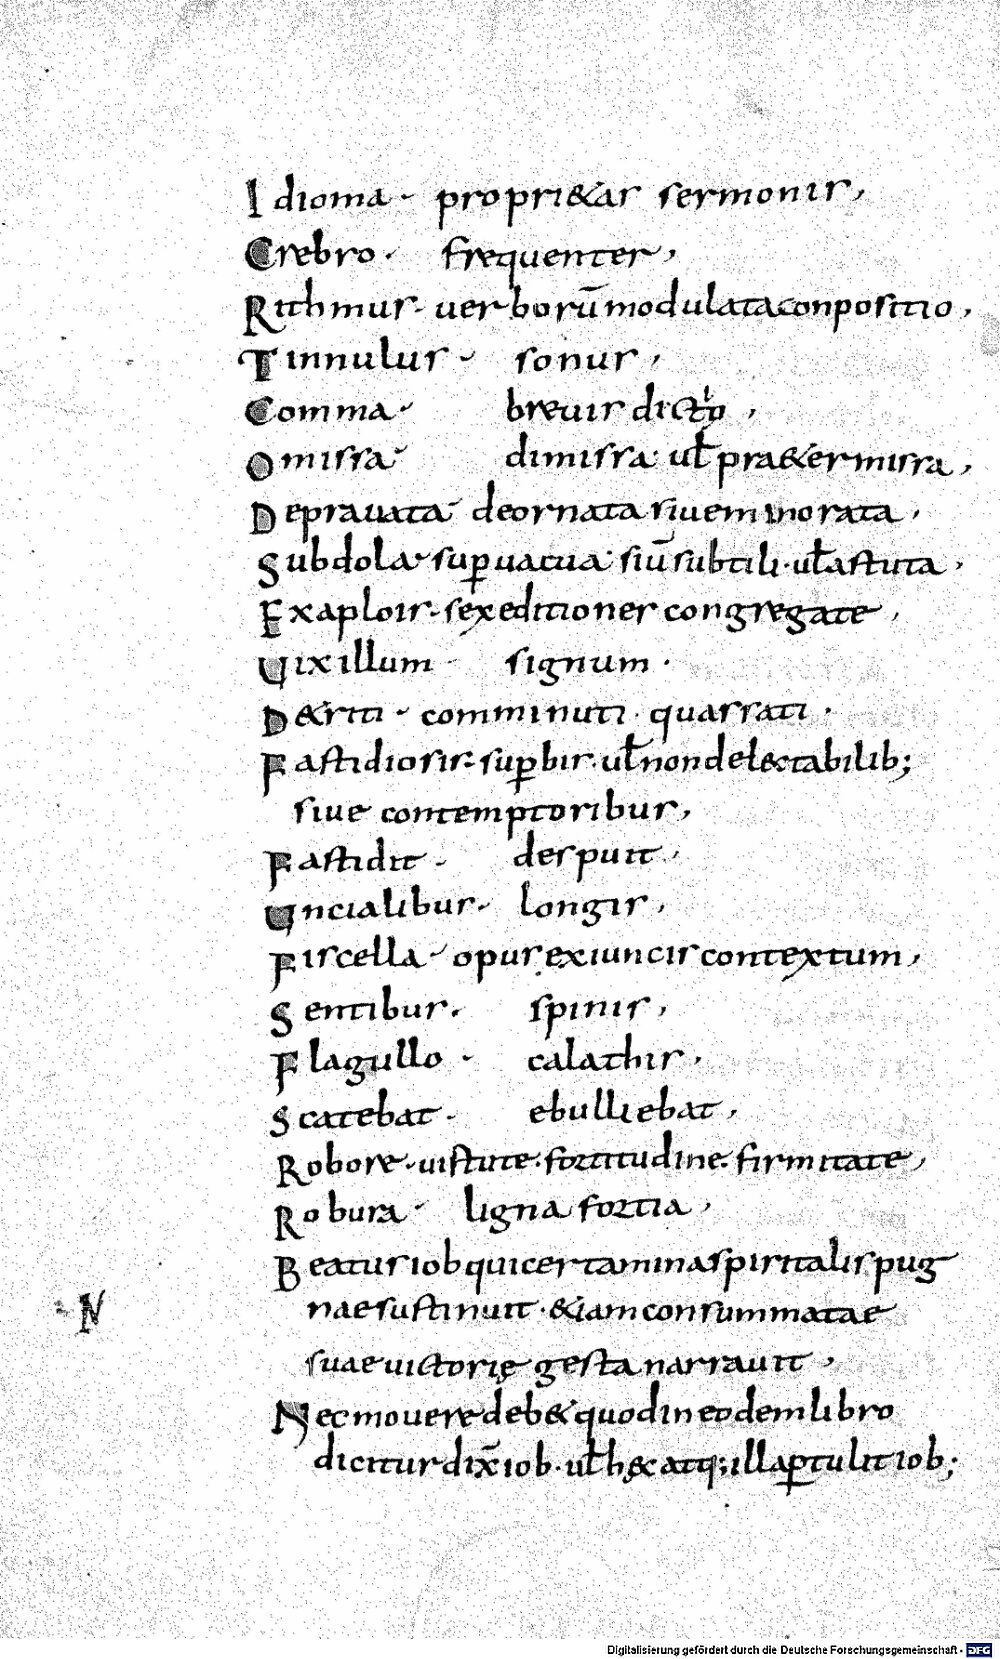 Idioma · propri&as sermonis,
Crebro · frequenter,
Rithmus · verborū modulata conpositio,
Tinnulus · sonus,
Comma · brevis dict̄o,
Omissa · dimissa ul̄ pra&ermissa,
Depravata · deornata sive minorata,
Subdola · sup̱vacua · siū subtili · ul̄ astuta,
Exaplois · sex editiones congregate,
Uixillum · signum ·
D&riti · comminuti · quassati ·
Fastidiosis · sup̱bis · ul̄ non del&tabilib;
sive contemptoribus,
Fastidit · despuit,
Uncialibus · longis,
Fiscella · opus ex iuncis contextum,
Sentibus · spinis,
Flagullo · calathis,
Scatebat · ebulliebat,
Robore · vistute · fortitudine · firmitate,
Robura · ligna fortia,
Beatus iob qui certamina spiritalis pug
nae sustinuit · &iam consummatae
suae victorię gesta narravit,
N
Nec movere deb& quod in eodem libro
dicitur dix̄ iob · ul̄ hęc atq; illa p̱tulit iob;
Digitalisierung gefördert durch die Deutsche Forschungsgemeinschaft - DFG